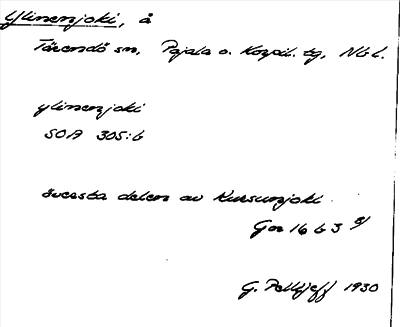 Ylinenjoki, å
Tärendö sn, Pajala o. Korpil. tg, Nb l.
ylinenjoki
SOA 305:6
översta delen av Kursunjoki
Gor 16 b 3
G. Pellijeff 1930